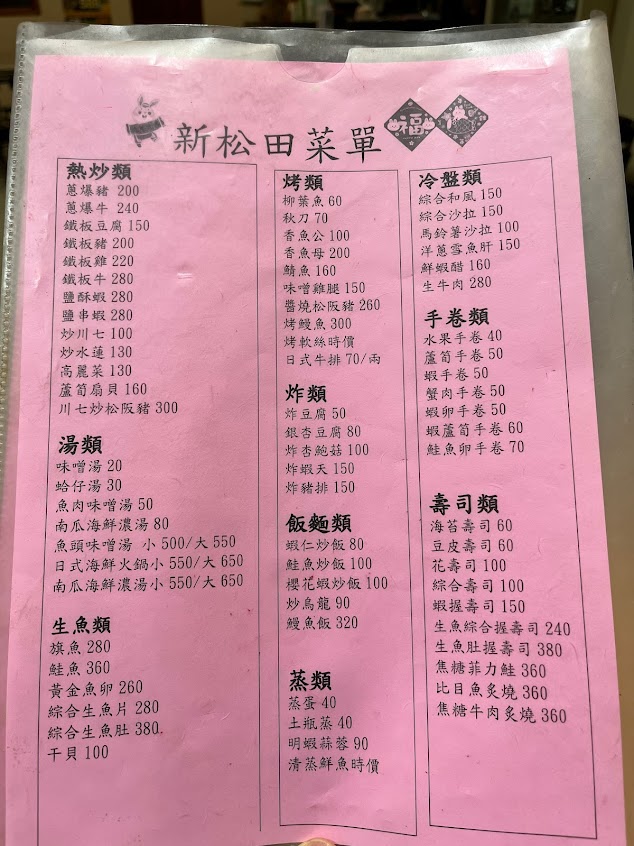 福
新松田菜單
熱炒類
蔥爆豬 200
蔥爆牛 240
鐵板豆腐 150
鐵板豬 200
鐵板雞 220
鐵板牛 280
鹽酥蝦 280
鹽串蝦 280
炒川七 100
炒水蓮 130
高麗菜 130
蘆筍扇貝 160
川七炒松阪豬 300
湯類
味噌湯 20
蛤仔湯 30
魚肉味噌湯 50
南瓜海鮮濃湯 80
魚頭味噌湯 小 500/大 550
日式海鮮火鍋小 550/大 650
南瓜海鮮濃湯小 550/大 650
生魚類
旗魚 280
鮭魚 360
黃金魚卵 260
綜合生魚片 280
綜合生魚肚 380.
干貝 100
烤類
柳葉魚 60
秋刀 70
香魚公 100
香魚母 200
鯖魚 160
味噌雞腿 150
醬燒松阪豬 260
烤鰻魚 300
烤軟絲時價
日式牛排 70/兩
炸類
炸豆腐 50
銀杏豆腐 80
炸杏鮑菇 100
炸蝦天 150
炸豬排 150
飯麵類
蝦仁炒飯 80
鮭魚炒飯 100
櫻花蝦炒飯 100
炒烏龍 90
鰻魚飯 320
蒸類
蒸蛋 40
土瓶蒸 40
明蝦蒜蓉 90
清蒸鮮魚時價
冷盤類
綜合和風 150
綜合沙拉 150
馬鈴薯沙拉 100
洋蔥雪魚肝 150
鮮蝦醋 160
生牛肉 280
手卷類
水果手卷 40
蘆筍手卷 50
蝦手卷 50
蟹肉手卷 50
蝦卵手卷 50
蝦蘆筍手卷 60
鮭魚卵手卷 70
壽司類
海苔壽司 60
豆皮壽司 60
花壽司 100
綜合壽司 100
蝦握壽司 150
生魚綜合握壽司 240
生魚肚握壽司 380
焦糖菲力鮭 360
比目魚炙燒 360
焦糖牛肉炙燒 360